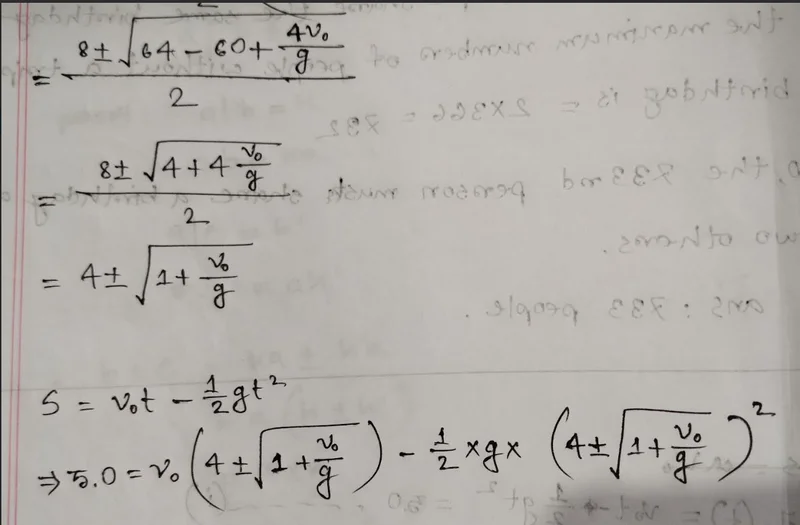 = (8 ± √(64 − 60 + 4v₀/g)) / 2
= (8 ± √(4 + 4 v₀/g)) / 2
= 4 ± √(1 + v₀/g)
S = v₀t − 1/2 gt²
⇒ 5.0 = v₀ (4 ± √(1 + v₀/g)) − 1/2 × g × (4 ± √(1 + v₀/g))²